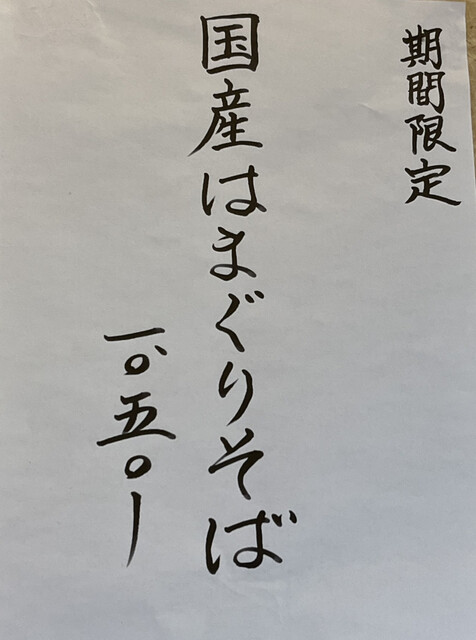 期間限定
国産はまぐりそば
一、〇五〇ー